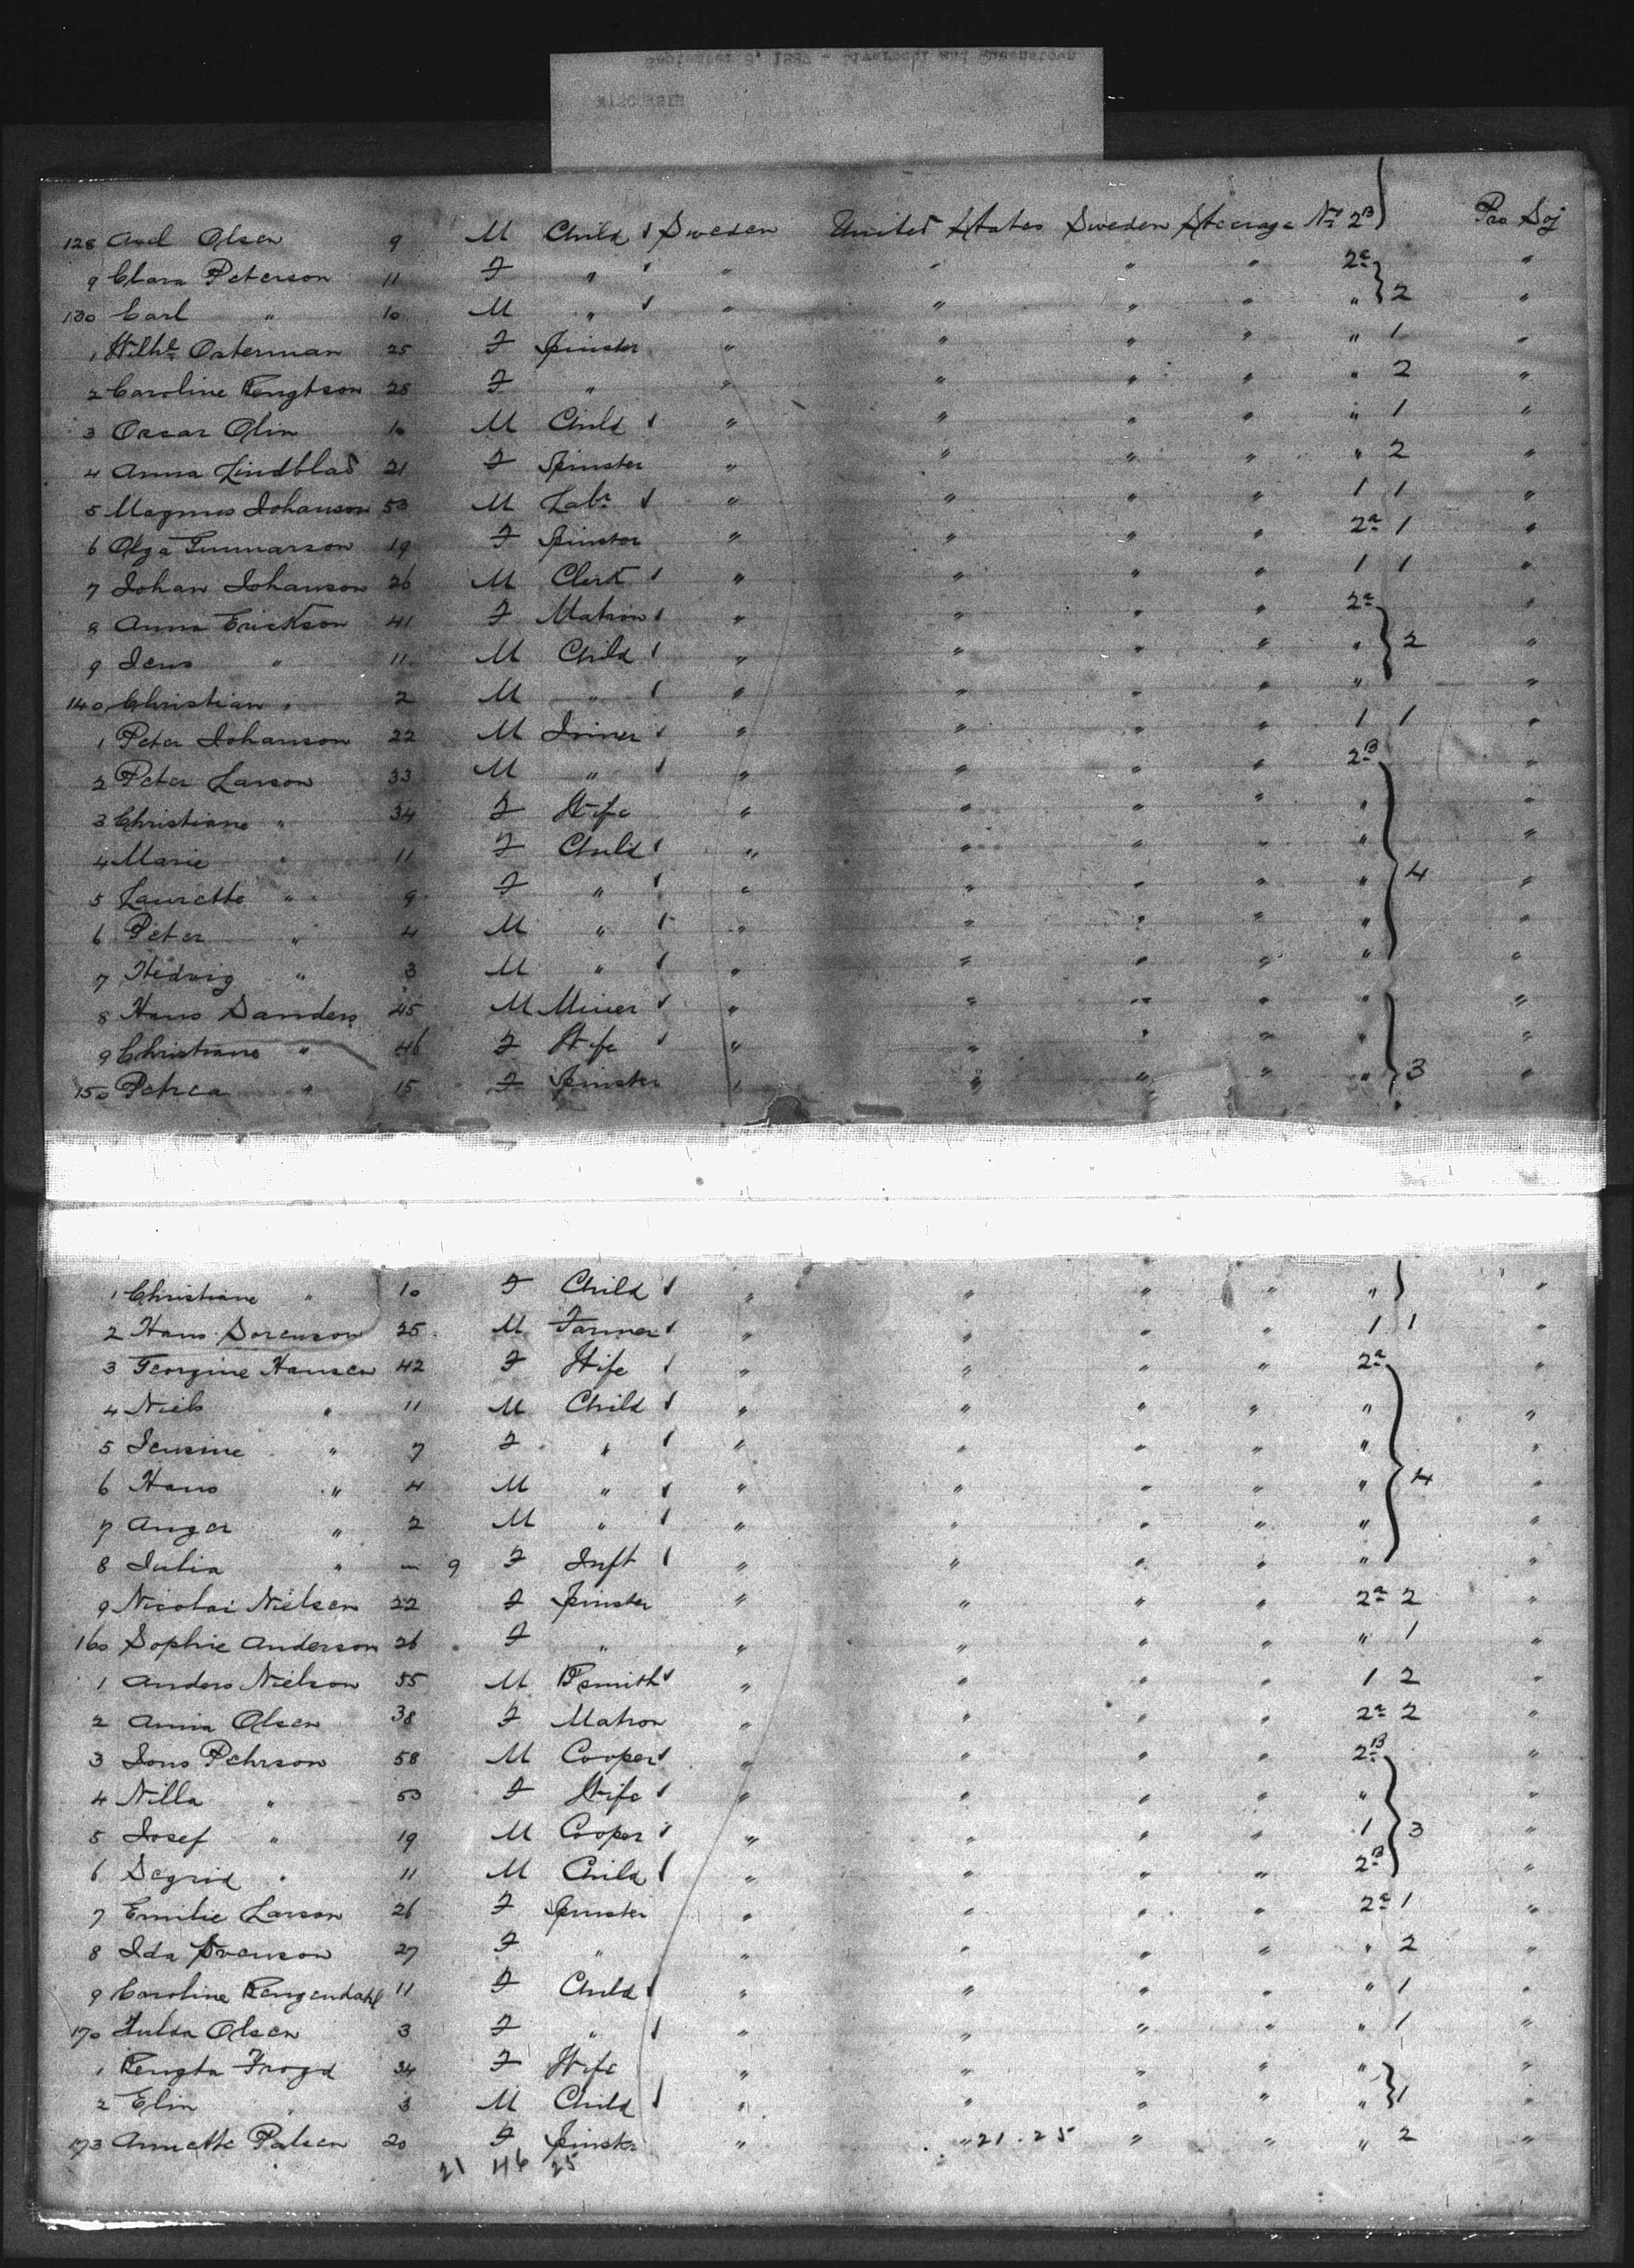 128 Axel Olsen 9 M Child ✓ Sweden United States Sweden Steerage No 2B Pro Soj
9 Clara Peterson 11 F " ✓ " " " " 2a "
130 Carl " 10 M " ✓ " " " " " 2 "
1 Wilhe Osterman 25 F Spinster " " " " " 1 "
2 Caroline Bengtson 28 F " " " " " " 2 "
3 Oscar Olin 10 M Child ✓ " " " " " 1 "
4 Anna Lindblad 21 F Spinster " " " " " 2 "
5 Magnus Johanson 53 M Labr ✓ " " " " 1 1 "
6 Olga Gunnarson 19 F Spinster " " " " 2a 1 "
7 Johan Johanson 26 M Clerk ✓ " " " " 1 1 "
8 Anna Erickson 41 F Matron ✓ " " " " 2a "
9 Jens " 11 M Child ✓ " " " " " 2 "
140 Christian " 2 M " ✓ " " " " " "
1 Peter Johanson 22 M Joiner ✓ " " " " 1 1 "
2 Peter Larson 33 M " ✓ " " " " 2B "
3 Christiane " 34 F Wife " " " " " "
4 Marie " 11 F Child ✓ " " " " " "
5 Laurette " 9 F " ✓ " " " " " 4 "
6 Peter " 4 M " ✓ " " " " " "
7 Hedvig " 3 M " ✓ " " " " " "
8 Hans Sanders 45 M Miner ✓ " " " " " "
9 Christiane " 46 F Wife ✓ " " " " " "
150 Petrea " 15 F Spinster " " " " " 3 "
1 Christiane " 10 F Child ✓ " " " " " "
2 Hans Sorenson 25 M Farmer ✓ " " " " 1 1 "
3 Georgine Hansen 42 F Wife ✓ " " " " 2a "
4 Niels " 11 M Child ✓ " " " " " "
5 Jensine " 7 F " ✓ " " " " " "
6 Hans " 4 M " ✓ " " " " " 4 "
7 Anger " 2 M " ✓ " " " " " "
8 Julia " — 9 F Inft ✓ " " " " " "
9 Nicolai Nielsen 22 F Spinster " " " " 2a 2 "
160 Sophie Anderson 26 F " " " " " " 1 "
1 Anders Nielson 55 M Bsmith ✓ " " " " 1 2 "
2 Anna Olsen 38 F Matron " " " " 2a 2 "
3 Jons Pehrson 58 M Cooper ✓ " " " " 2B "
4 Nilla " 53 F Wife ✓ " " " " " "
5 Josef " 19 M Cooper ✓ " " " " 1 3 "
6 Segrid " 11 M Child ✓ " " " " 2B "
7 Emilie Larson 26 F Spinster " " " " 2a 1 "
8 Ida Svenson 27 F " " " " " " 2 "
9 Caroline Bengendahl 11 F Child ✓ " " " " " 1 "
170 Hulda Olsen 3 F " ✓ " " " " " 1 "
1 Bengta Frogd 34 F Wife " " " " " "
2 Elin " 3 M Child ✓ " " " " " 1 "
173 Annette Palsen 20 F Spinster " " 21 . 25 " " " 2 "
21 46 25